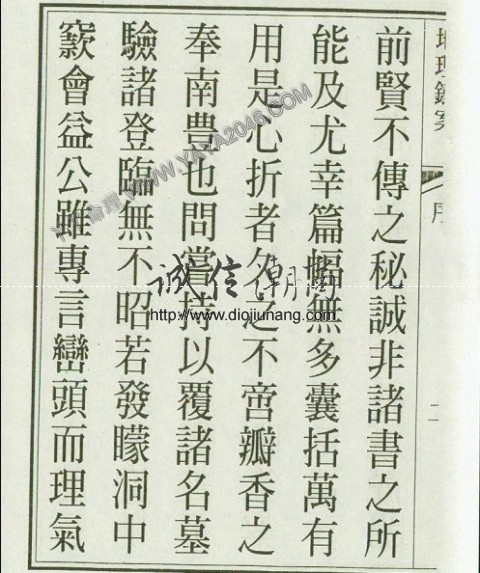 地理錄要
序
二
前賢不傳之秘誠非諸書之所
能及尤幸篇幅無多囊括萬有
用是心折者久之不啻瓣香之
奉南豊也問嘗持以覆諸名墓
驗諸登臨無不昭若發矇洞中
窾會益公雖專言巒頭而理氣
WWW.YAYA2046.COM
誠信
http://www.diojiunang.com